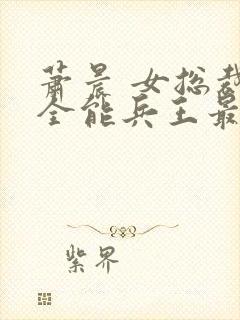 萧晨 女总裁
全能兵王最
紫界